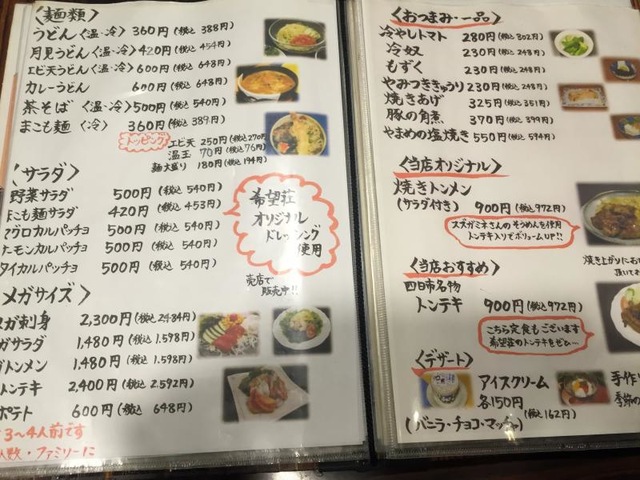 〈麺類〉
うどん〈温・冷〉360円(税込 388円)
月見うどん〈温・冷〉420円(税込 454円)
エビ天うどん〈温・冷〉600円(税込 648円)
カレーうどん 600円(税込 648円)
茶そば〈温・冷〉500円(税込 540円)
まこも麺〈冷〉 360円(税込 389円)
トッピング エビ天 250円(税込270円)
温玉 70円(税込76円)
麺大盛り 180円(税込194円)
〈サラダ〉
野菜サラダ 500円(税込 540円)
まこも麺サラダ 420円(税込 453円)
マグロカルパッチョ 500円(税込 540円)
サーモンカルパッチョ 500円(税込 540円)
タイカルパッチョ 500円(税込 540円)
希望荘
オリジナル
ドレッシング
使用
売店で
販売中!!
メガサイズ〉
ガ刺身 2,300円(税込 2484円)
ガサラダ 1,480円(税込 1.598円)
トンメン 1,480円(税込 1.598円)
トンテキ 2,400円(税込 2.592円)
ポテト 600円(税込 648円)
3〜4人前です
人数・ファミリーに
〈おつまみ・一品〉
冷やしトマト 280円(税込302円)
冷奴 230円(税込 248円)
もずく 230円(税込 248円)
やみつききゅうり 230円(税込 248円)
焼きあげ 325円(税込351円)
豚の角煮 370円(税込 399円)
やまめの塩焼き 550円(税込 594円)
〈当店オリジナル〉
焼きトンメン
(サラダ付き) 900円(税込972円)
スズガミネさんのそうめんを使用
トンテキ入りでボリュームUP!!
焼き上がりにお
頂いて
〈当店おすすめ〉
四日市名物
トンテキ 900円(税込972円)
こちら定食もございます
希望荘のトンテキをぜひ…
〈デザート〉
アイスクリーム
各150円
(税込162円)
(バニラ・チョコ・マッチャ)
手作り
季節の